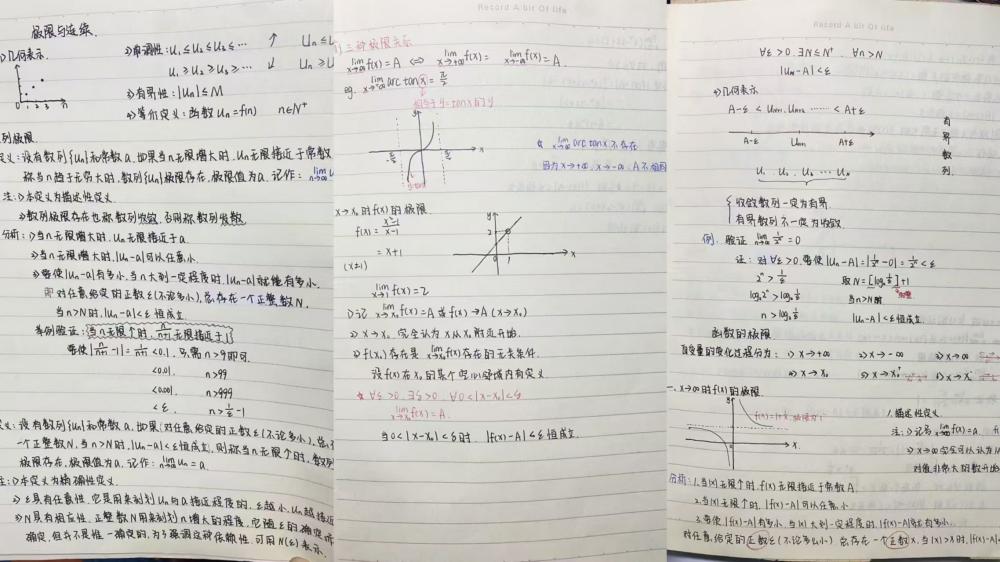 极限与连续.
1)几何表示
2)单调性: U₁≤U₂≤U₃≤… ↑ Un≤U
U₁≥U₂≥U₃≥… ↓ Un≥U
3)有界性: |Un|≤M
4)等价定义: 函数 Un=f(n) n∈N⁺
0 1 2 3 n
列极限
定义: 设有数列{Un}和常数a. 如果当n无限增大时. Un无限接近于常数
称当n趋于无穷大时, 数列{Un}极限存在, 极限值为a. 记作: lim n→∞ U
注: 1)本定义为描述性定义
2)数列极限存在也称数列收敛, 否则称数列发散.
分析: 1)当n无限增大时, Un无限接近于a.
2)当n无限增大时, |Un-a|可以任意小.
3)要使|Un-a|有多小, 当n大到一定程度时, |Un-a|就能有多小.
即对任意给定的正数ε(不论多小), 总存在一个正整数N,
当n>N时, |Un-a|<ε恒成立.
举例验证: 当n无限个时, n/(n+1)无限接近于1
要使|n/(n+1) -1|= 1/(n+1) <0.1. 只需 n>9即可.
<0.01. n>99
<0.001. n>999
<ε. n>1/ε-1
定义: 设有数列{Un}和常数a. 如果(对任意给定的正数ε(不论多小), 总
一个正整数N, 当n>N时, |Un-a|<ε恒成立, 则称当n无限个时, 数列
极限存在, 极限值为a. 记作: lim n→∞ Un=a.
注: 1)本定义为精确性定义
2)ε具有任意性, 它是用来刻划Un与a接近程度的. ε越小, Un越接近
3)N具有相应性, 正整数N用来刻划n增大的程度, 它随ε的确定而
确定, 但并不是唯一确定的, 为了强调这种依赖性, 可用N(ε)表示.
三种极限关系
lim x→∞ f(x)=A ⇔ lim x→+∞ f(x)= lim x→-∞ f(x)=A.
eg. lim x→+∞ arctanx=π/2
相当于y=tanx的y
y
x
-π/2
π/2
y=tanx
☆ lim x→∞ arctanx 不存在
因为x→+∞, x→-∞, A不相同
x→x₀时f(x)的极限
f(x)= (x²-1)/(x-1)
= x+1
(x≠1)
y
2
0 1 x
lim x→1 f(x)=2
1)记 lim x→x₀ f(x)=A 或 f(x)→A (x→x₀)
2) x→x₀ 完全认为x从x₀附近开始.
3) f(x₀)存在是 lim x→x₀ f(x)存在的无关条件.
设f(x)在x₀的某个空心邻域内有定义
☆ ∀ε>0, ∃δ>0, ∀0<|x-x₀|<δ
lim x→x₀ f(x)=A.
当0<|x-x₀|<δ时, |f(x)-A|<ε恒成立.
Record A bit Of life
∀ε>0. ∃N∈N⁺. ∀n>N
|Un-A|<ε
2)几何表示
A-ε < Un+1, Un+2 …… < A+ε
A-ε Un+1 A+ε
U₁ U₂, U₃ … Un
有界数列.
收敛数列一定为有界.
有界数列不一定为收敛.
例. 验证 lim n→∞ 1/2ⁿ=0
证: 对∀ε>0. 要使|Un-A|=|1/2ⁿ-0|=1/2ⁿ<ε
2ⁿ>1/ε 取N=[log₂1/ε]+1
log₂2ⁿ>log₂1/ε 当n>N时
n>log₂1/ε |Un-A|<ε恒成立
函数的极限
自变量的变化过程分为: 1) x→+∞ 2) x→-∞ 3) x→∞
4) x→x₀ 5) x→x₀⁺ 6) x→x₀⁻
一. x→∞时f(x)的极限
y
f(x)=1+1/x, 极限为1
x
1.描述性定义
注: 1)记为 lim x→∞ f(x)=a.
2) x→∞完全可以认为从
对值非常大的数开始
分析: 1.当|x|无限个时, f(x)无限接近于常数A.
2.当|x|无限个时, |f(x)-A|可以任意小.
3.要使|f(x)-A|有多小, 当|x|大到一定程度时, |f(x)-A|就有多小.
对任意给定的正数ε(不论多么小) 总存在一个正数X, 当|x|>X时, |f(x)-A|